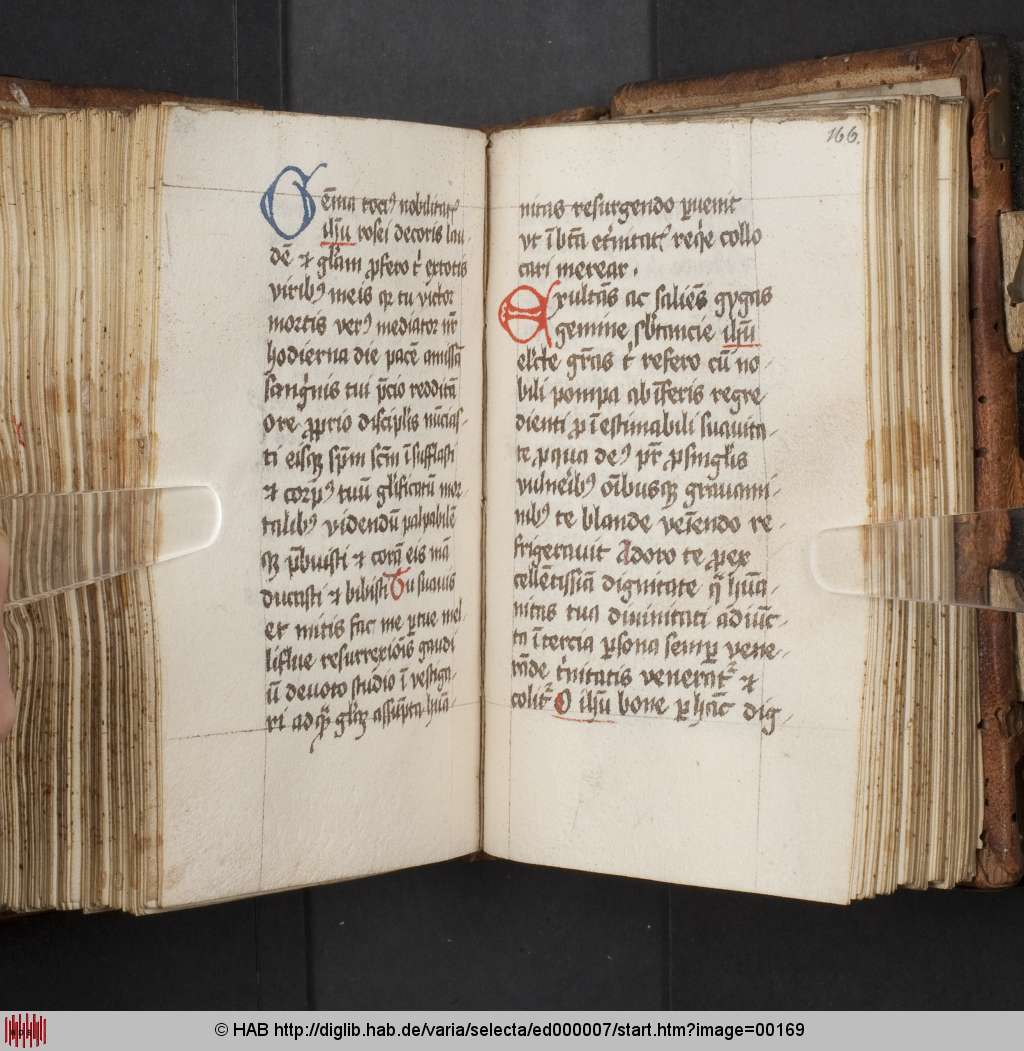 Gema tociꝰ nobilitatꝭ
ihu̅ rosei decoris lau-
de̅ et gl̅am ꝓfero t̅ ex totis
viribꝰ meis qꝛ tu victor
mortis verꝰ mediator nr̅
hodierna die pace̅ amissa̅
sangͥnis tui p̅cio reddita̅
ore ꝓprio discipl̅is nu̅cias-
ti eisqꝫ sp̅m sc̅m i̅sufflasti
et corpꝰ tuu̅ gl̅ificatu̅ mor-
talibꝰ videndu̅ palpabile̅
qꝫ p̅buisti et cora̅ eis ma̅
ducasti et bibisti Tu suavis
et mitis fac me ꝑ tue mel-
liflue resurrexio̅is gaudi
u̅ devoto studio i̅vestiga-
ri ad qua̅ gl̅ia̅ assu̅pta hu̅a-
166.
nitas resurgendo ꝑuenit
vt i̅ bt̅a et̅nitatꝭ reqͥe collo
cari merear.
Exulta̅s ac salie̅s gygas
gemine sb̅tancie ihu̅
elc̅te gr̅as t̅ refero cu̅ no-
bili pompa ab i̅feris regre
dienti ꝓ i̅estimabili suauita-
te ꝓ qua deꝰ pr̅ ꝓ singl̅is
vulneribꝰ o̅ibusqꝫ grauami-
nibꝰ te blande veie̅ndo re-
frigerauit Adoro te ꝓ ex
celle̅tissia̅ dignitate q̅ hu̅a-
nitas tua diuinitati adiu̅c-
ta i̅ tercia ꝑsona semꝑ vene-
ra̅de tͥnitatis veneratꝛ et
colitꝛ O ihu̅ bone ꝑ ha̅c dig-
© HAB http://diglib.hab.de/varia/selecta/ed000007/start.htm?image=00169